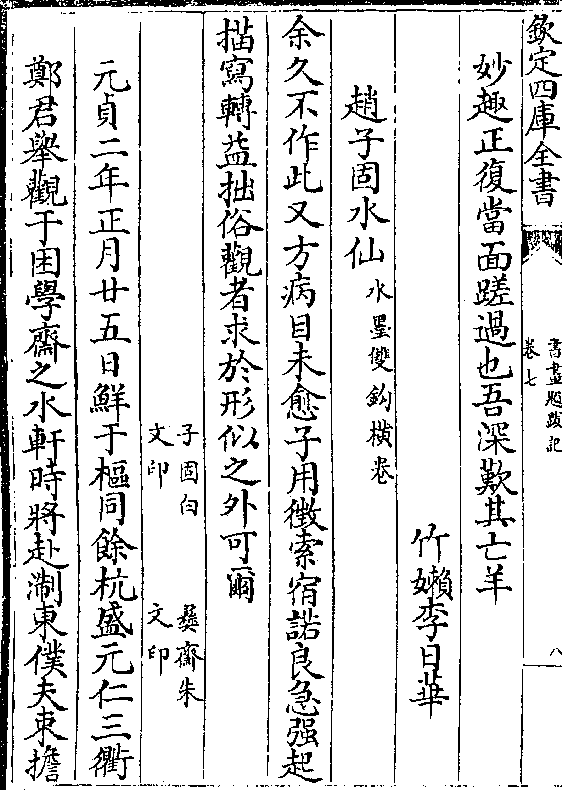 欽定四庫全書
書畫題跋記
卷七
八
妙趣正復當面蹉過也吾深歎其亡羊
竹嬾李日華
趙子固水仙 水墨雙鈎橫卷
余久不作此又方病目未愈子用徵索宿諾良急强起
描寫轉益拙俗觀者求於形似之外可爾
子固白文印 彜齋朱文印
元貞二年正月廿五日鮮于樞同餘杭盛元仁三衢
鄭君舉觀于困學齋之水軒時將赴淛東僕夫束擔